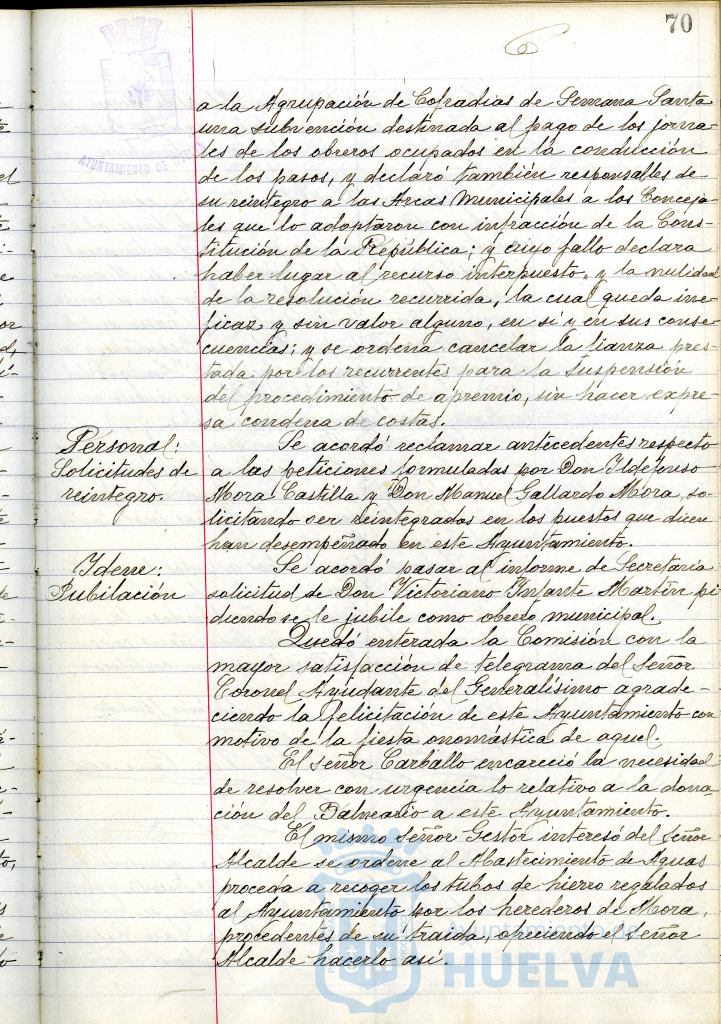 70
a la Agrupación de Cofradias de Semana Santa
una subvención destinada al pago de los jorna-
les de los obreros ocupados en la conducción
de los pasos, y declaró también responsables de
su reintegro a las Arcas Municipales a los Conceja-
les que lo adoptaron con infracción de la Cons-
titución de la República; y cuyo fallo declara
haber lugar al recurso interpuesto, y la nulidad
de la resolución recurrida, la cual queda ine-
ficaz y sin valor alguno, en sí y en sus conse-
cuencias; y se ordena cancelar la fianza pres-
tada por los recurrentes para la suspensión
del procedimiento de apremio, sin hacer expre-
sa condena de costas.
Personal:
Solicitudes de
reintegro.
Se acordó reclamar antecedentes respecto
a las peticiones formuladas por Don Ildefonso
Mora Castilla y Don Manuel Gallardo Mora, so-
licitando ser reintegrados en los puestos que dicen
han desempeñado en este Ayuntamiento.
Idem:
Jubilación
Se acordó pasar al informe de Secretaria
solicitud de Don Victoriano Infante Martín pi
diendo se le jubile como obrero municipal.
Quedó enterada la Comisión con la
mayor satisfacción de telegrama del Señor
Coronel Ayudante del Generalísimo agrade-
ciendo la felicitación de este Ayuntamiento con
motivo de la fiesta onomástica de aquel.
El señor Carballo encareció la necesidad
de resolver con urgencia lo relativo a la dona-
ción del Balneario a este Ayuntamiento.
El mismo señor Gestor interesó del señor
Alcalde se ordene al Abastecimiento de Aguas
proceda a recoger los tubos de hierro regalados
al Ayuntamiento por los herederos de Mora,
procedentes de su traida, ofreciendo el señor
Alcalde hacerlo así.
AYUNTAMIENTO DE HUELVA
Ayuntamiento de
HUELVA